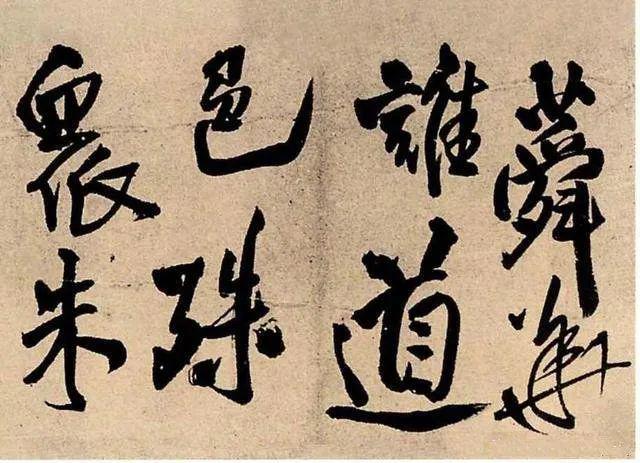 蕣華
誰道
色殊
衆朱